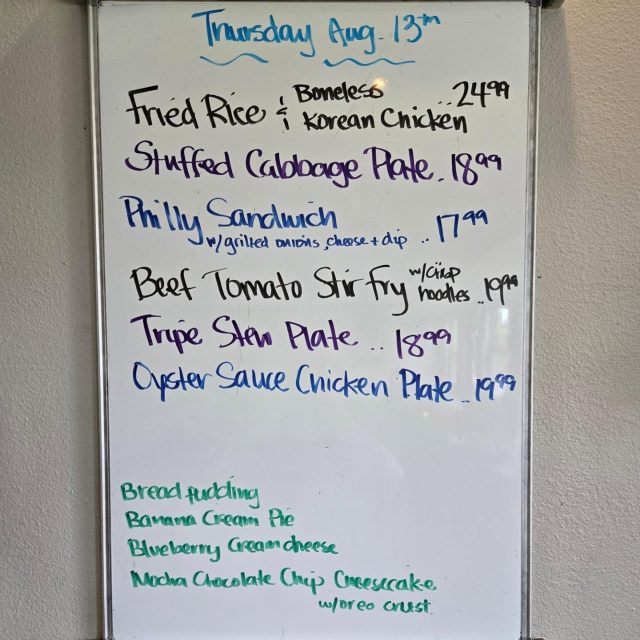 Thursday Aug. 13th
Fried Rice & Boneless Korean Chicken ..24.99
Stuffed Cabbage Plate. 18.99
Philly Sandwich
w/grilled onions, cheese + dip .. 17.99
Beef Tomato Stir fry w/crisp noodles ..19.99
Tripe Stew Plate .. 18.99
Oyster Sauce Chicken Plate .. 19.99
Bread pudding
Banana Cream Pie
Blueberry Creamcheese
Mocha Chocolate Chip Cheesecake
w/oreo crust